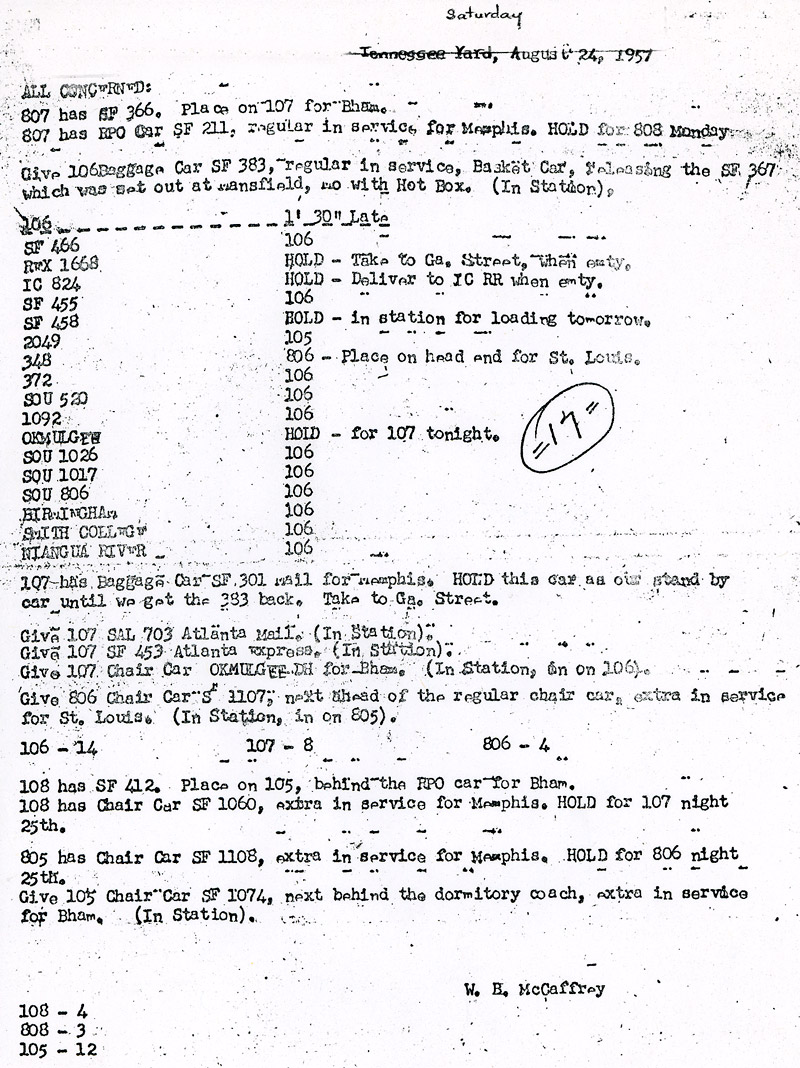 Saturday
Tennessee Yard, August 24, 1957
ALL CONCERNED:
807 has SF 366. Place on 107 for Bham.
807 has RPO Car SF 211, regular in service for Memphis. HOLD for 808 Monday.
Give 106Baggage Car SF 383, regular in service, Basket Car, releasing the SF 367
which was set out at Mansfield, Mo with Hot Box. (In Station).
106 1' 30" Late
SF 466 106
REX 1668 HOLD - Take to Ga. Street, when emty.
IC 824 HOLD - Deliver to IC RR when emty.
SF 455 106
SF 458 HOLD - in station for loading tomorrow.
2049 105
348 806 - Place on head end for St. Louis.
372 106
SOU 520 106
1092 106
OKMULGEE HOLD - for 107 tonight.
=17=
SOU 1026 106
SOU 1017 106
SOU 806 106
BIRMINGHAM 106
SMITH COLLEGE 106
NIANGUA RIVER 106
107 has Baggage Car SF 301 mail for Memphis. HOLD this car as our stand by
car until we get the 383 back. Take to Ga. Street.
Give 107 SAL 703 Atlanta Mail. (In Station).
Give 107 SF 453 Atlanta Express. (In Station).
Give 107 Chair Car OKMULGEE DH for Bham. (In Station, in on 106).
Give 806 Chair Car SF 1107, next ahead of the regular chair car, extra in service
for St. Louis. (In Station, in on 805).
106 - 14 107 - 8 806 - 4
108 has SF 412. Place on 105, behind the RPO car for Bham.
108 has Chair Car SF 1060, extra in service for Memphis. HOLD for 107 night
25th.
805 has Chair Car SF 1108, extra in service for Memphis. HOLD for 806 night
25th.
Give 105 Chair Car SF 1074, next behind the dormitory coach, extra in service
for Bham. (In Station).
W. H. McCaffrey
108 - 4
808 - 3
105 - 12